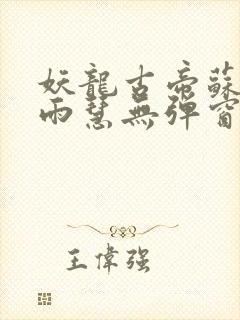 妖龍古帝蘇
雨慧無彈窗
王偉强